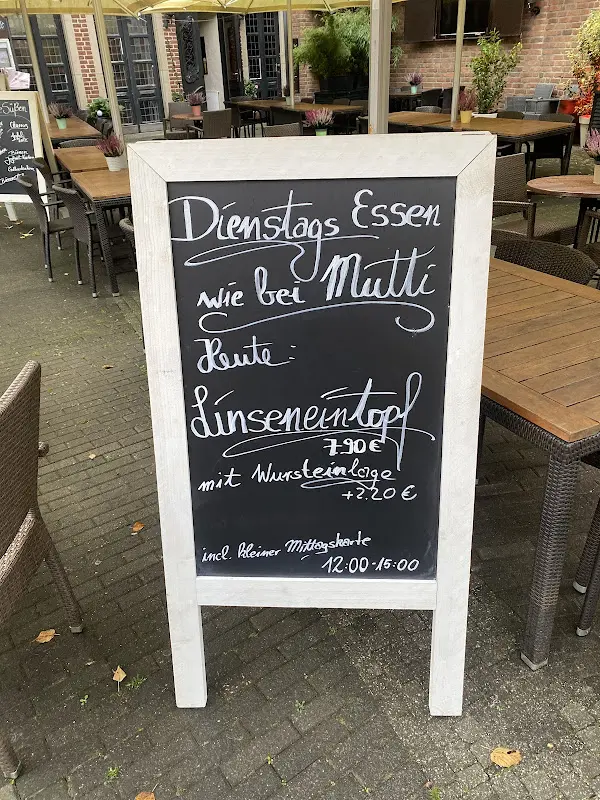 Dienstags Essen
wie bei Mutti
Heute:
Linseneintopf
7.90€
mit Wursteinlage
+2.20€
incl. kleiner Mittagskarte
12:00-15:00